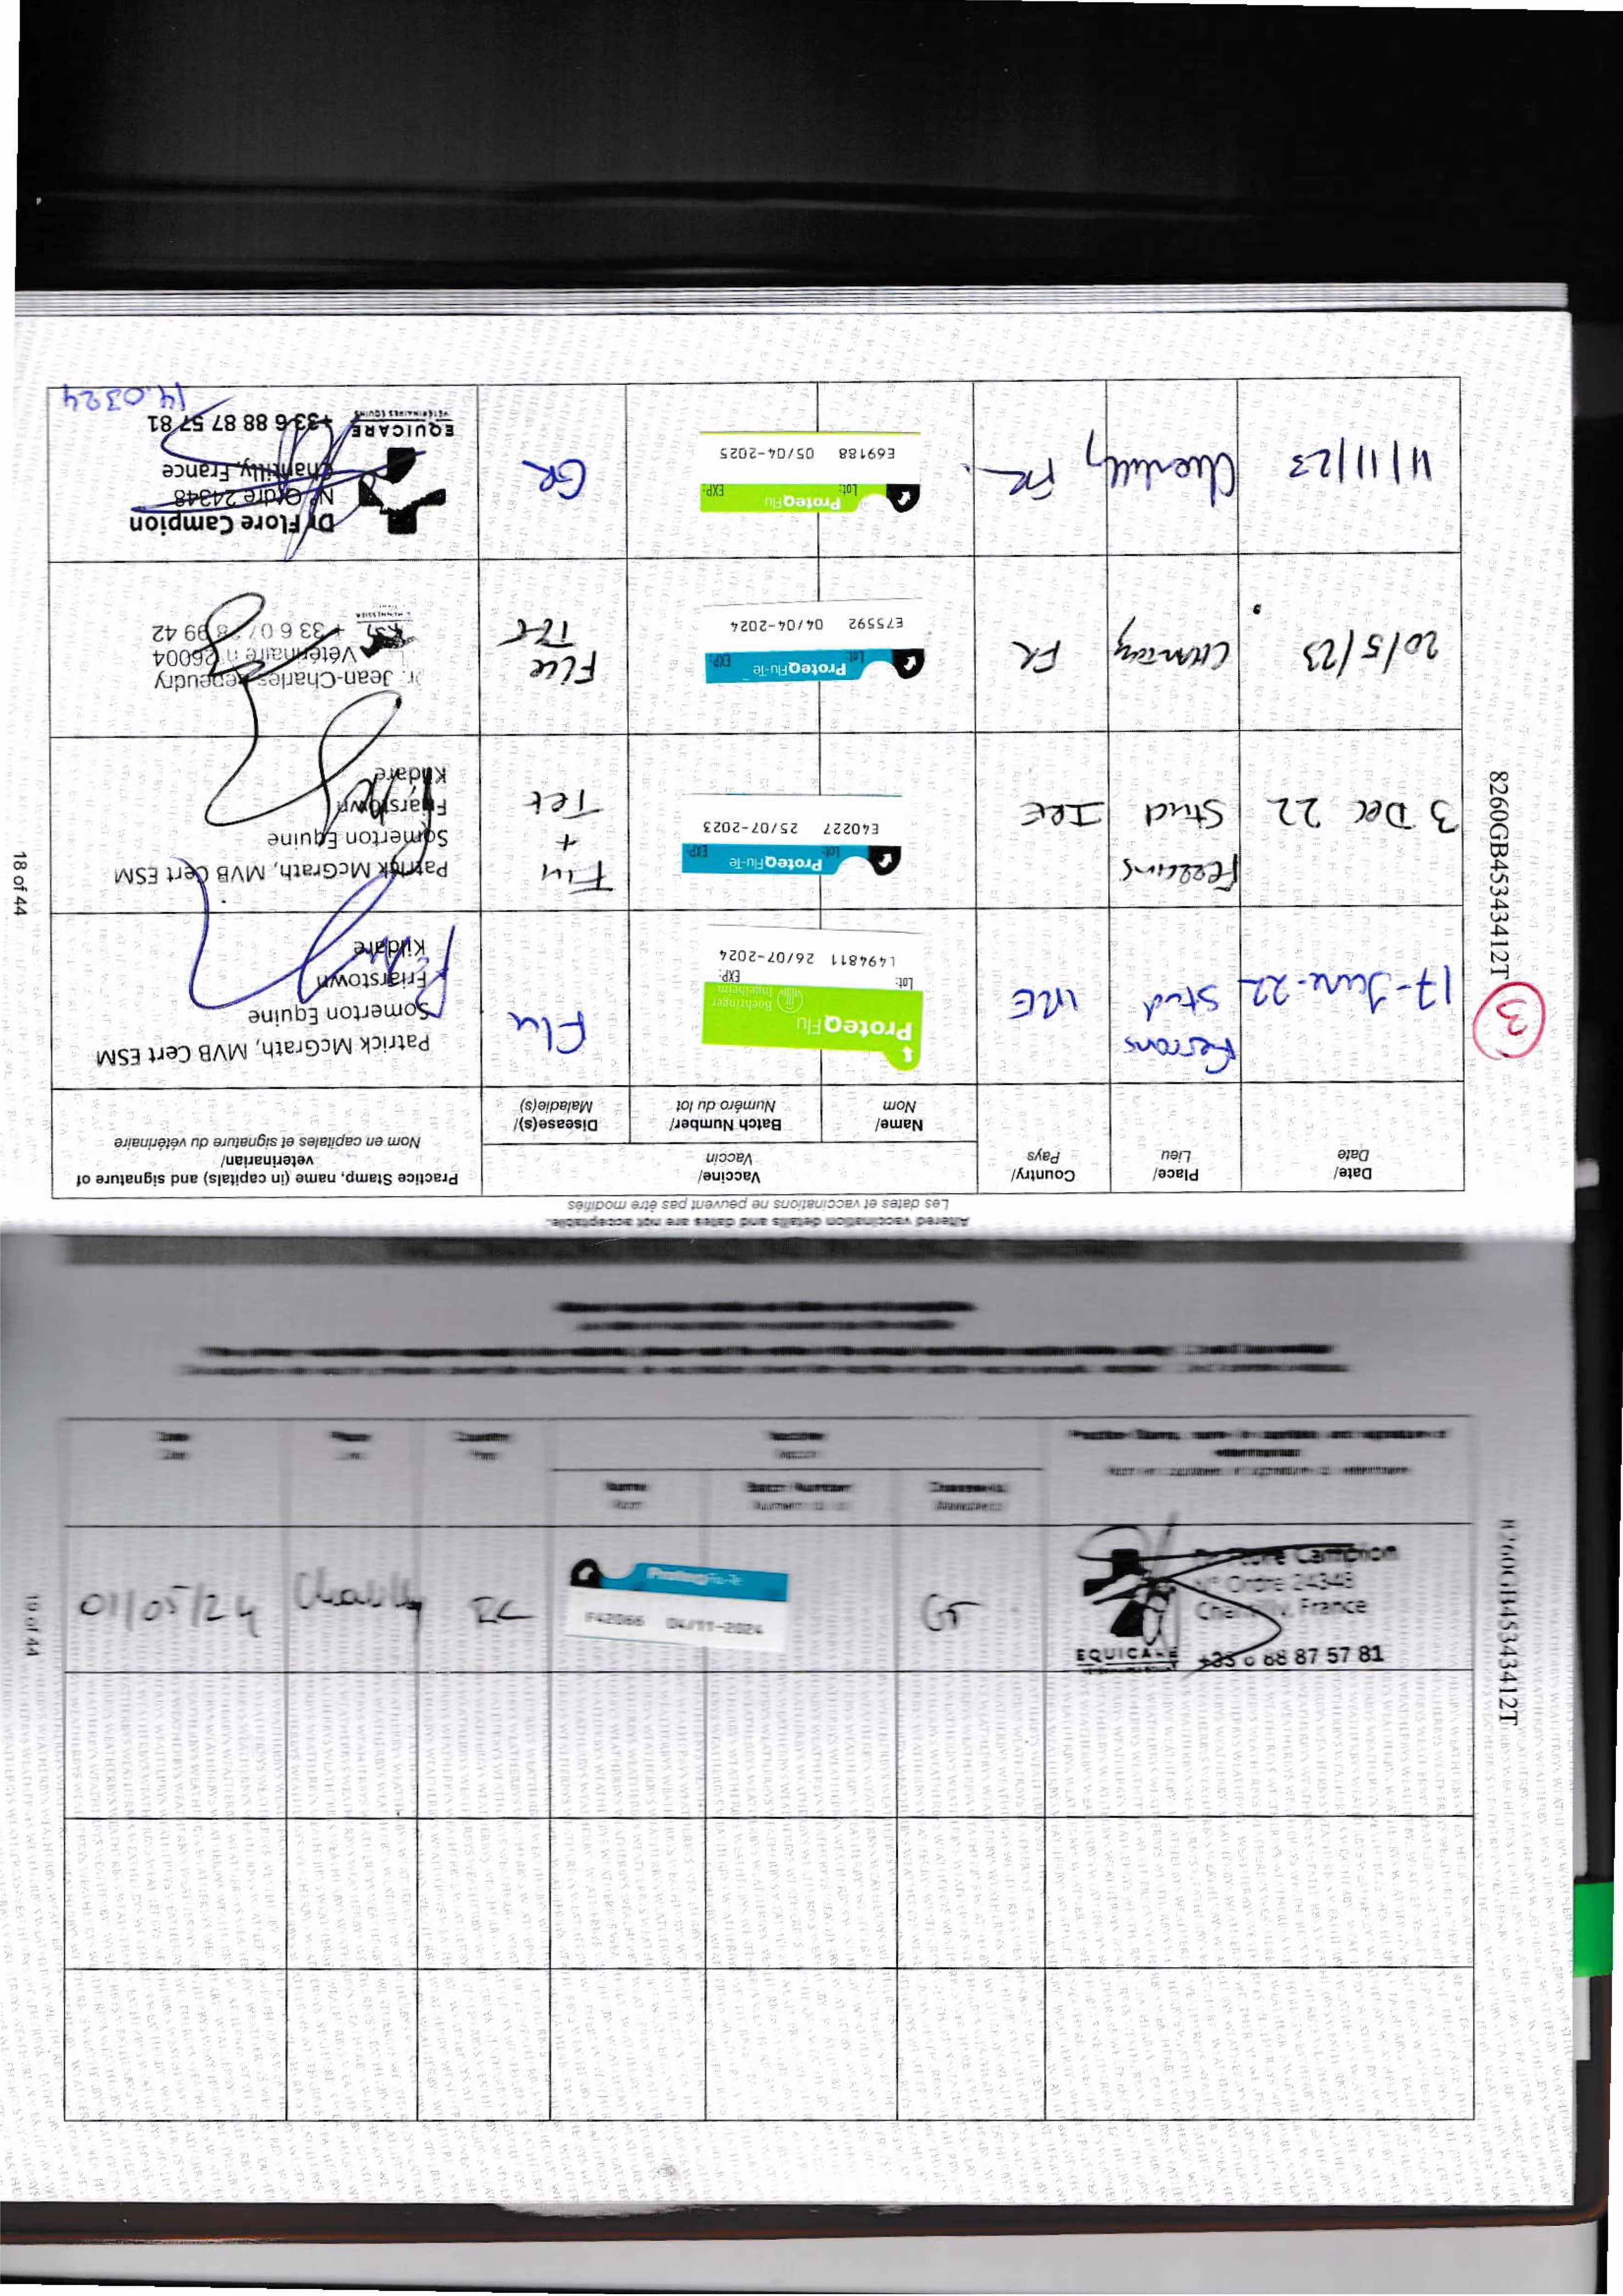 Altered vaccination details and dates are not acceptable.
Les dates et vaccinations ne peuvent pas être modifiés
Date/
Date
Place/
Lieu
Country/
Pays
Vaccine/
Vaccin
Name/
Nom
Batch Number/
Numéro du lot
Disease(s)/
Maladie(s)
Practice Stamp, name (in capitals) and signature of
veterinarian/
Nom en capitales et signature du vétérinaire
17-June-22
Stud
IRE
ProteqFlu
Boehringer
Ingelheim
Lot:
EXP:
L494811 26/07-2024
Flu
Patrick McGrath, MVB Cert ESM
Somerton Equine
Friarstown
Kildare
3 Dec 22
Stud
IRE
ProteqFlu-Te
Lot:
EXP:
E40227 25/07-2023
Flu
+
Tet
Patrick McGrath, MVB Cert ESM
Somerton Equine
Friarstown
Kildare
20/5/23
FR
ProteqFlu-Te
Lot:
EXP:
E75592 04/04-2024
Flue
Tet
Dr. Jean-Charles
Vétérinaire n°26004
11/11/23
Chantilly
FR
ProteqFlu
Lot:
EXP:
E69188 05/04-2025
GR
Dr Flore Campion
N° Ordre 24348
Chantilly, France
EQUICARE
VÉTÉRINAIRES ÉQUINS
+33 6 88 87 57 81
14.0324
8260GB45343412T
3
18 of 44
01/05/24
Chantilly
ProteqFlu-Te
F42066 04/11-2024
GT
Dr Flore Campion
N° Ordre 24348
Chantilly, France
EQUICARE
+33 6 88 87 57 81
8260GB45343412T
19 of 44